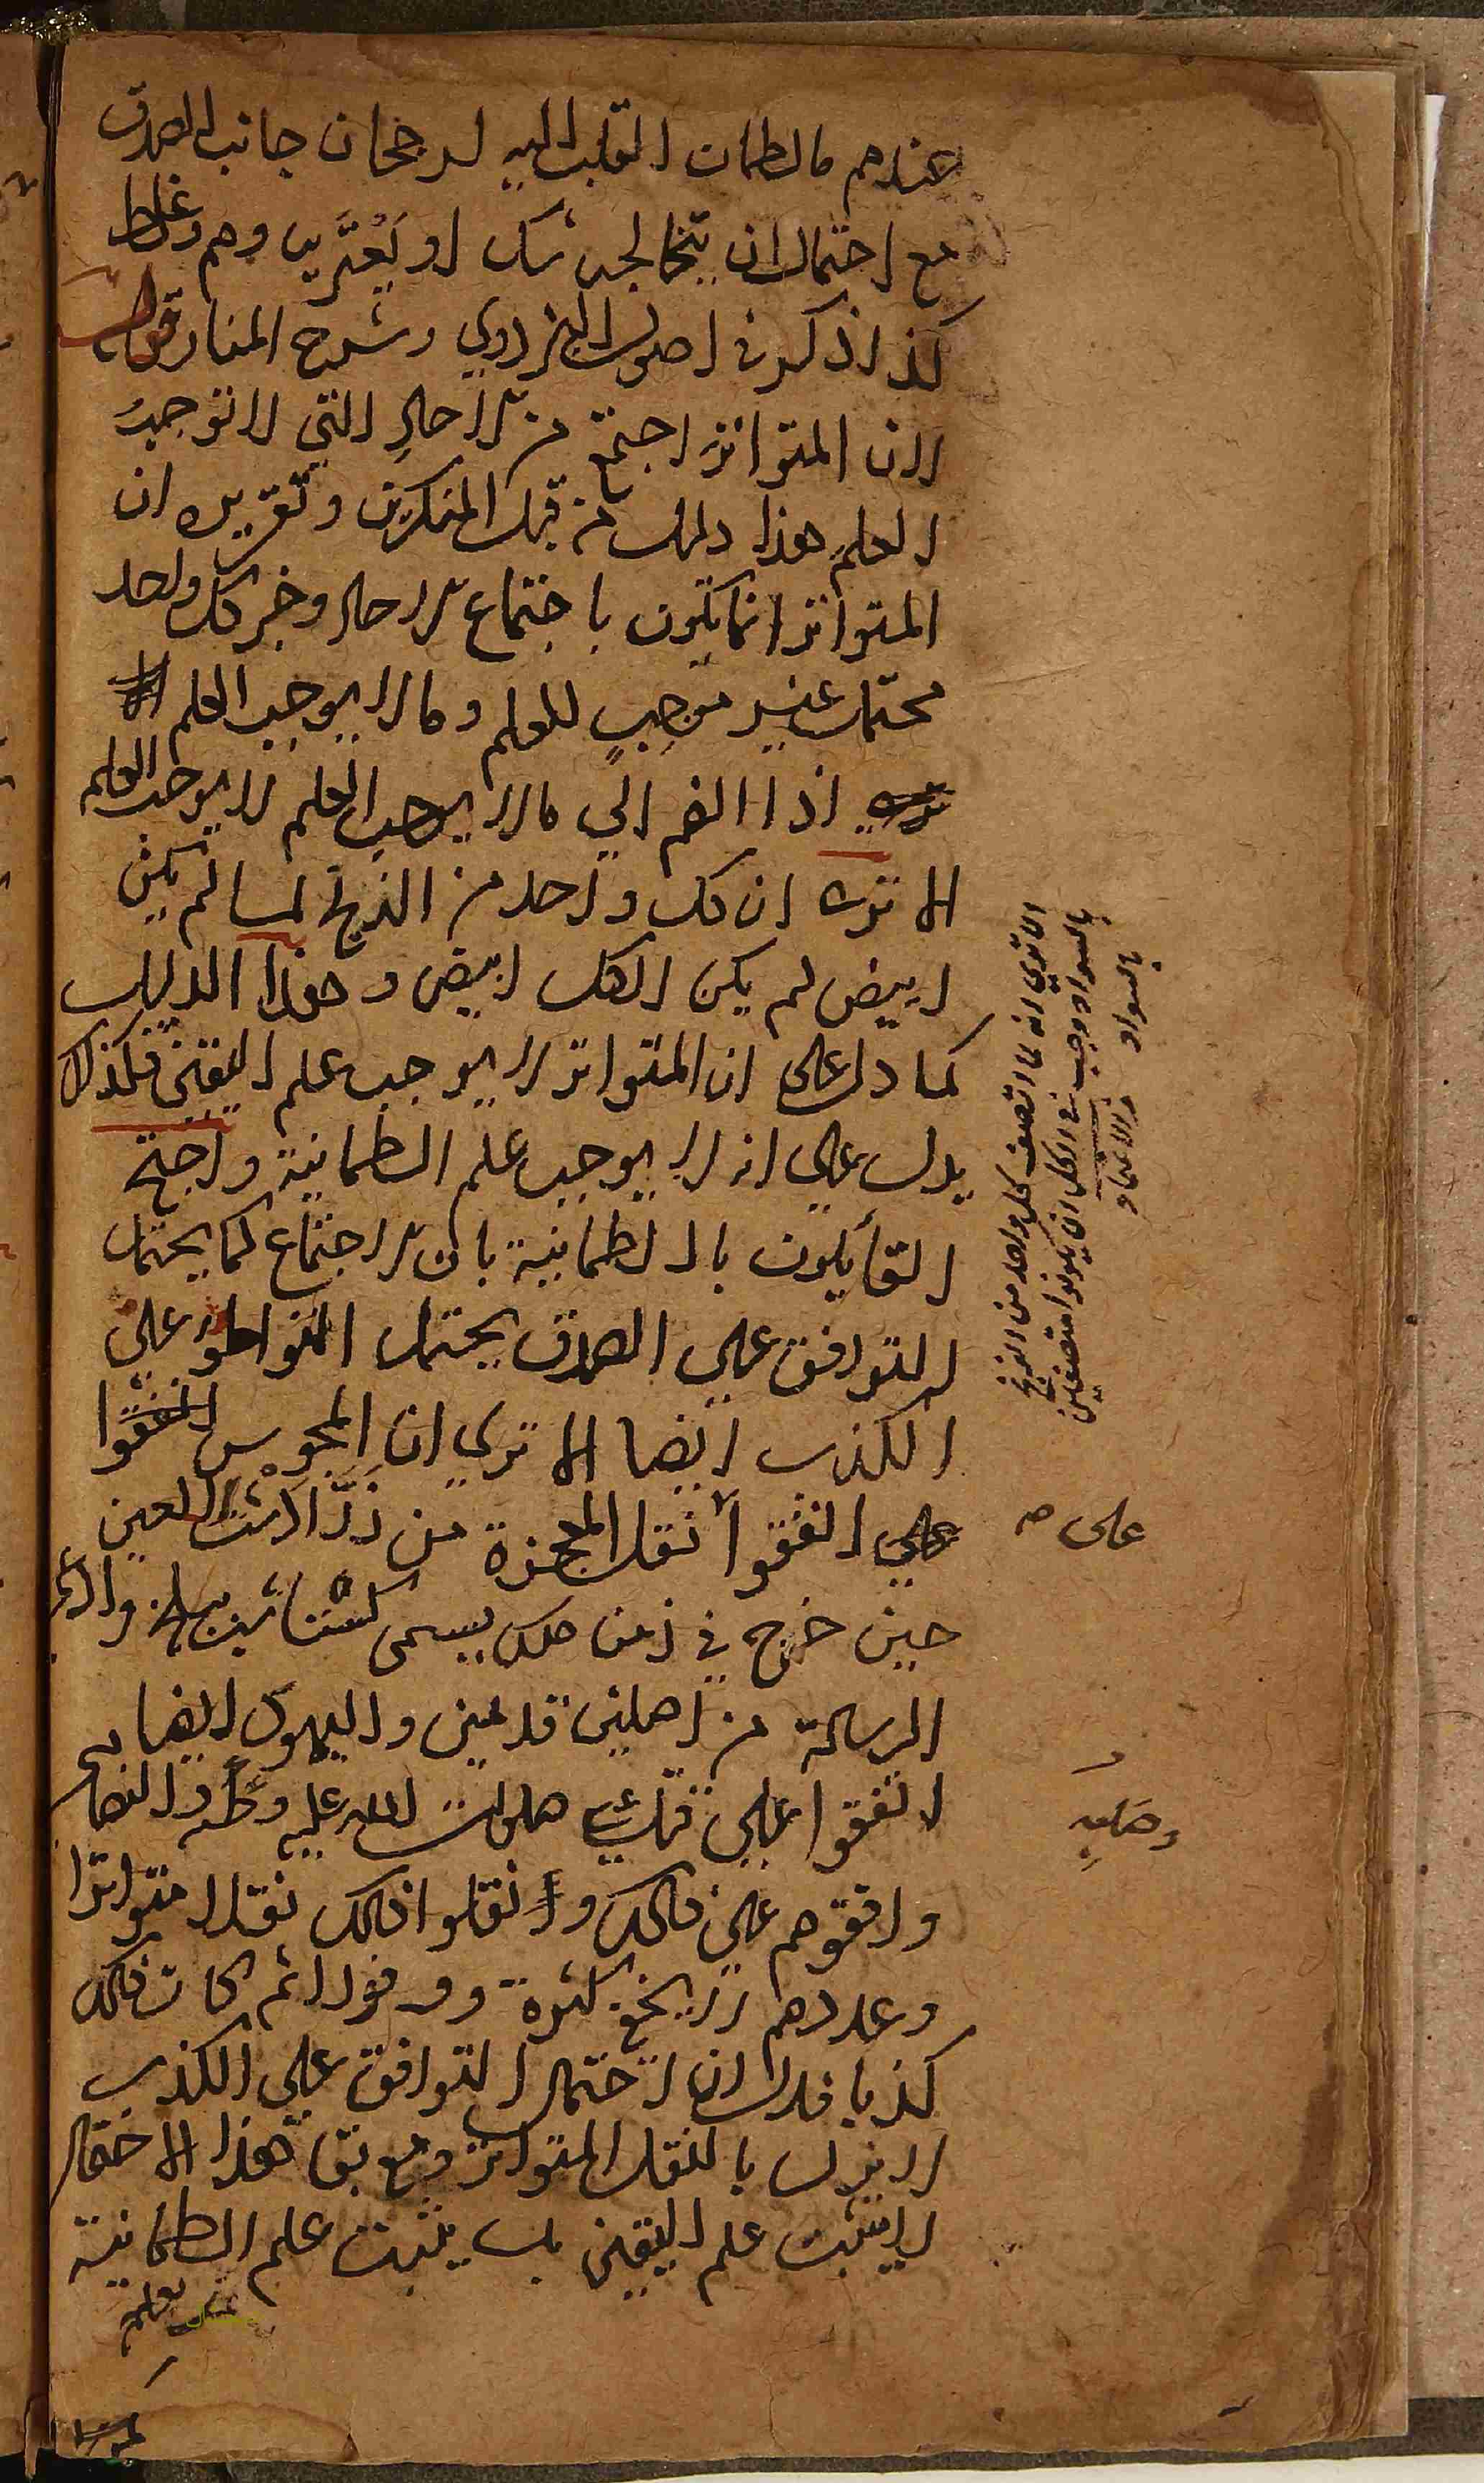 عندهم ما اطمان القلب اليه لرجحان جانب الصدق
مع احتمال ان يتخالجه شك او يَعْتَريه وهم وغلط
كذا ذكر في اصول البزدوي وشرح المنار قوله
لان المتواتر اجتمع من الاحاد التي لا توجب
العلم هذا دليل من قبل المنكرين وتقريره ان
المتواتر انما يكون باجتماع الاحاد وخبر كل واحد
محتمل غير موجب للعلم وما لا يوجب العلم
اذا انضم الي ما لا يوجب العلم لا يوجب العلم
الا تري ان كل واحد من الزنج لما لم يكن
ابيض لم يكن الكل ابيض وهذا الدليل
كما دل علي ان المتواتر لا يوجب علم اليقين فكذلك
يدل علي انه لا يوجب علم الطمانينة واحتج
القايلون بالطمانينة بان الاجتماع كما يحتمل
التوافق علي الصدق يحتمل التواطؤ علي
الكذب ايضا الا تري ان المجوس اتفقوا
علي اتفقوا نقل المعجزة من زَرَادُشْت اللعين
حين خرج في زمن ملك يسمى كشتاسب وادعى
الرسالة من اصلين قديمين واليهود ايضا
اتفقوا علي قتل عيسي صلوات الله عليه والنصارى
وافقوهم علي ذلك ونقلوا ذلك نقلا متواترا
وعددهم لا يخفي كثرة ووفورا ثم كان ذلك
كذبا فدل ان احتمال التوافق علي الكذب
لا يزول بالنقل المتواتر ومع بقا هذا الاحتمال
لا يثبت علم اليقين بل يثبت علم الطمانينة
الا تري انه لما اتصف كل واحد من الزنج
بالسواد وجب في الكل ان يكونوا متصفين
بالسواد
على صح
وصلبه